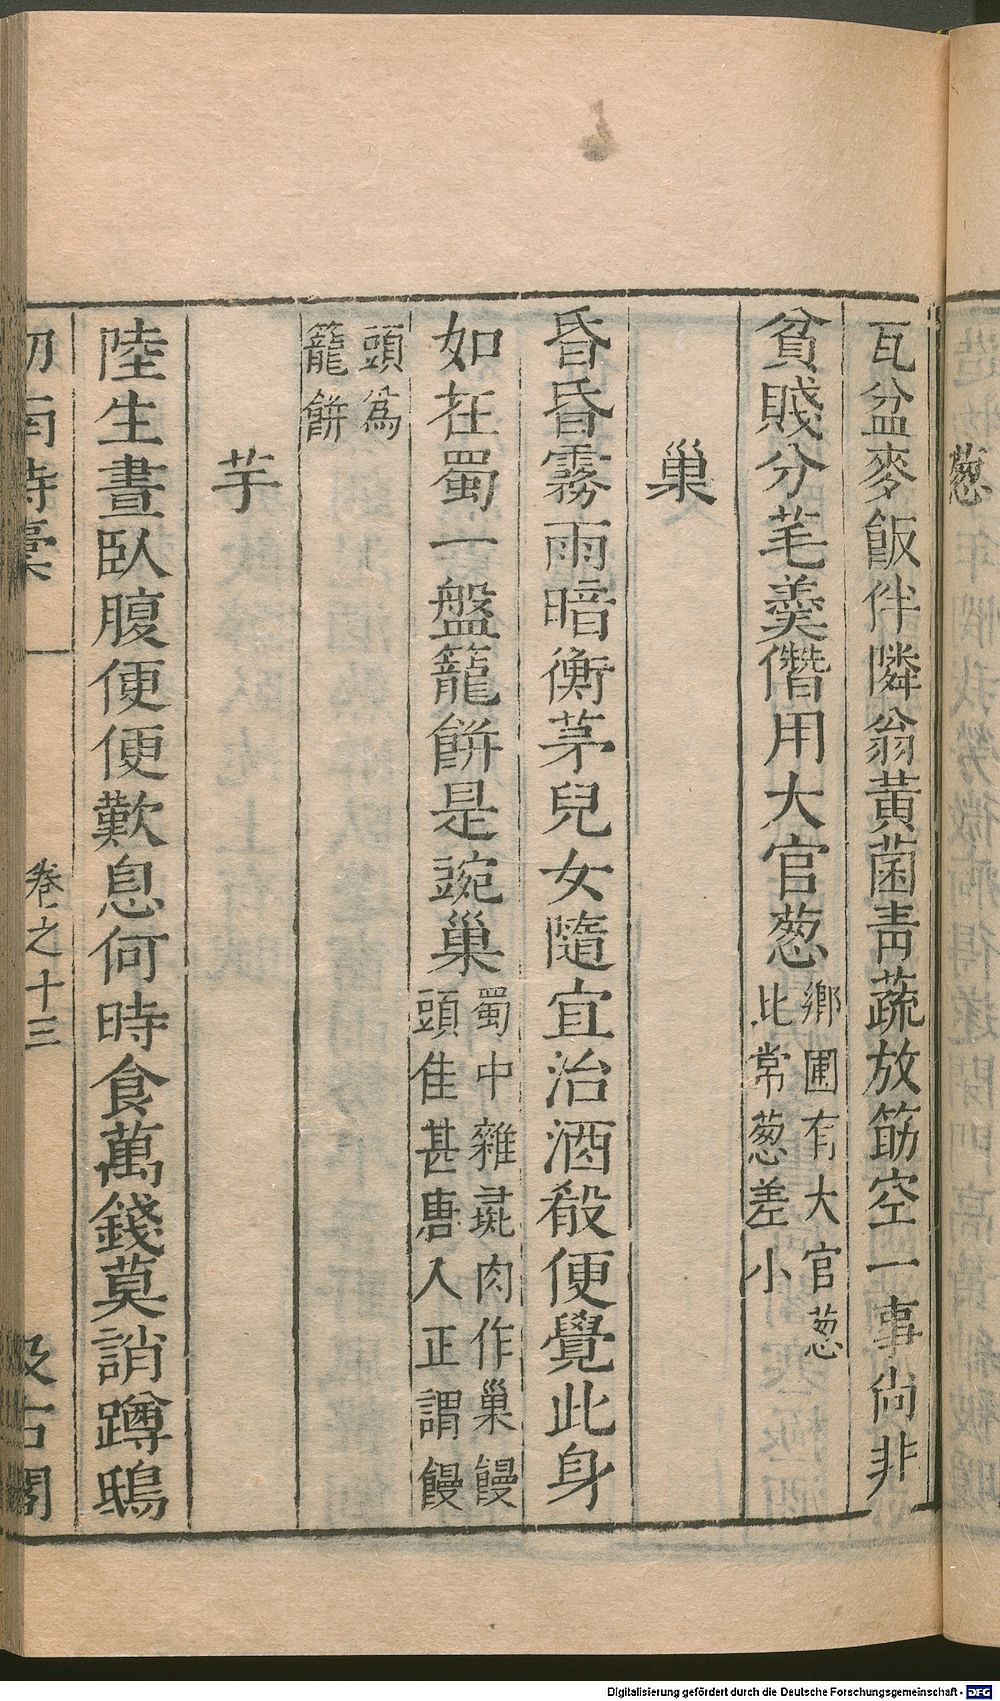 葱
瓦盆麥飯伴隣翁黃菌青蔬放筯空一事尚非
貧賤分芼羹僭用大官葱鄉圃有大官葱
比常葱差小
巢
昏昏霧雨暗衡茅兒女隨宜治酒殽便覺此身
如在蜀一盤籠餅是豌巢蜀中雜彘肉作巢饅
頭佳甚唐人正謂饅
頭爲
籠餅
芋
陸生晝臥腹便便歎息何時食萬錢莫誚蹲鴟
劒南詩稾 卷之十三 汲古閣
Digitalisierung gefördert durch die Deutsche Forschungsgemeinschaft - DFG